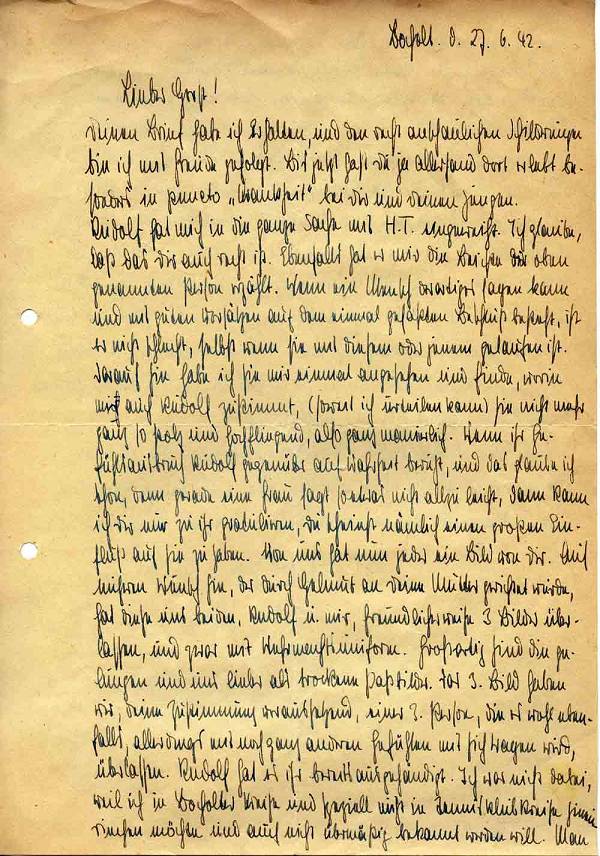 Bocholt. d. 27. 6. 42.
Lieber Horst!
Deinen Brief habe ich erhalten, und den recht anschaulichen Schilderungen
bin ich mit Freude gefolgt. Bis jetzt hast Du ja allerhand dort erlebt be-
sonders in puncto „Krankheit" bei Dir und Deinen Jungen.
Rudolf hat mich in die ganze Sache mit H.T. eingeweiht. Ich glaube,
daß das Dir auch recht ist. Ebenfalls hat er mir die Beichte der oben
genannten Person erzählt. Wenn ein Mensch derartiges sagen kann
und mit guten Vorsätzen auf dem einmal gefaßten Entschluß besteht, ist
er nicht schlecht, selbst wenn sie mit diesem oder jenem gelaufen ist.
Darauf hin habe ich sie mir einmal angesehen und finde, worin
mir auch Rudolf zustimmt, (soweit ich urteilen kann) sie nicht mehr
ganz so stolz und hochfliegend, also ganz manierlich. Wenn ihr Ge-
fühlsausbruch Rudolf gegenüber auf Wahrheit beruht, und das glaube ich
schon, denn gerade eine Frau sagt so etwas nicht allzu leicht, dann kann
ich Dir nur zu ihr gratulieren, Du scheinst nämlich einen großen Ein-
fluß auf sie zu haben. Von uns hat nun jeder ein Bild von Dir. Auf
unseren Wunsch hin, der durch Helmut an Deine Mutter gerichtet wurde,
hat diese uns beiden, Rudolf u. mir, freundlicherweise 3 Bilder über-
lassen, und zwar mit Wehrmachtsuniform. Großartig sind die ge-
lungen und uns lieber als trockene Paßbilder. Das 3. Bild haben
wir, Deine Zustimmung voraussetzend, einer 3. Person, die es wohl eben-
falls, allerdings mit noch ganz anderen Gefühlen mit sich tragen wird,
überlassen. Rudolf hat es ihr bereits ausgehändigt. Ich war nicht dabei,
weil ich in Bocholter Kreise und speziell nicht in Tennisklubkreise hinein
riechen möchte und auch nicht übermäßig bekannt werden will. Man